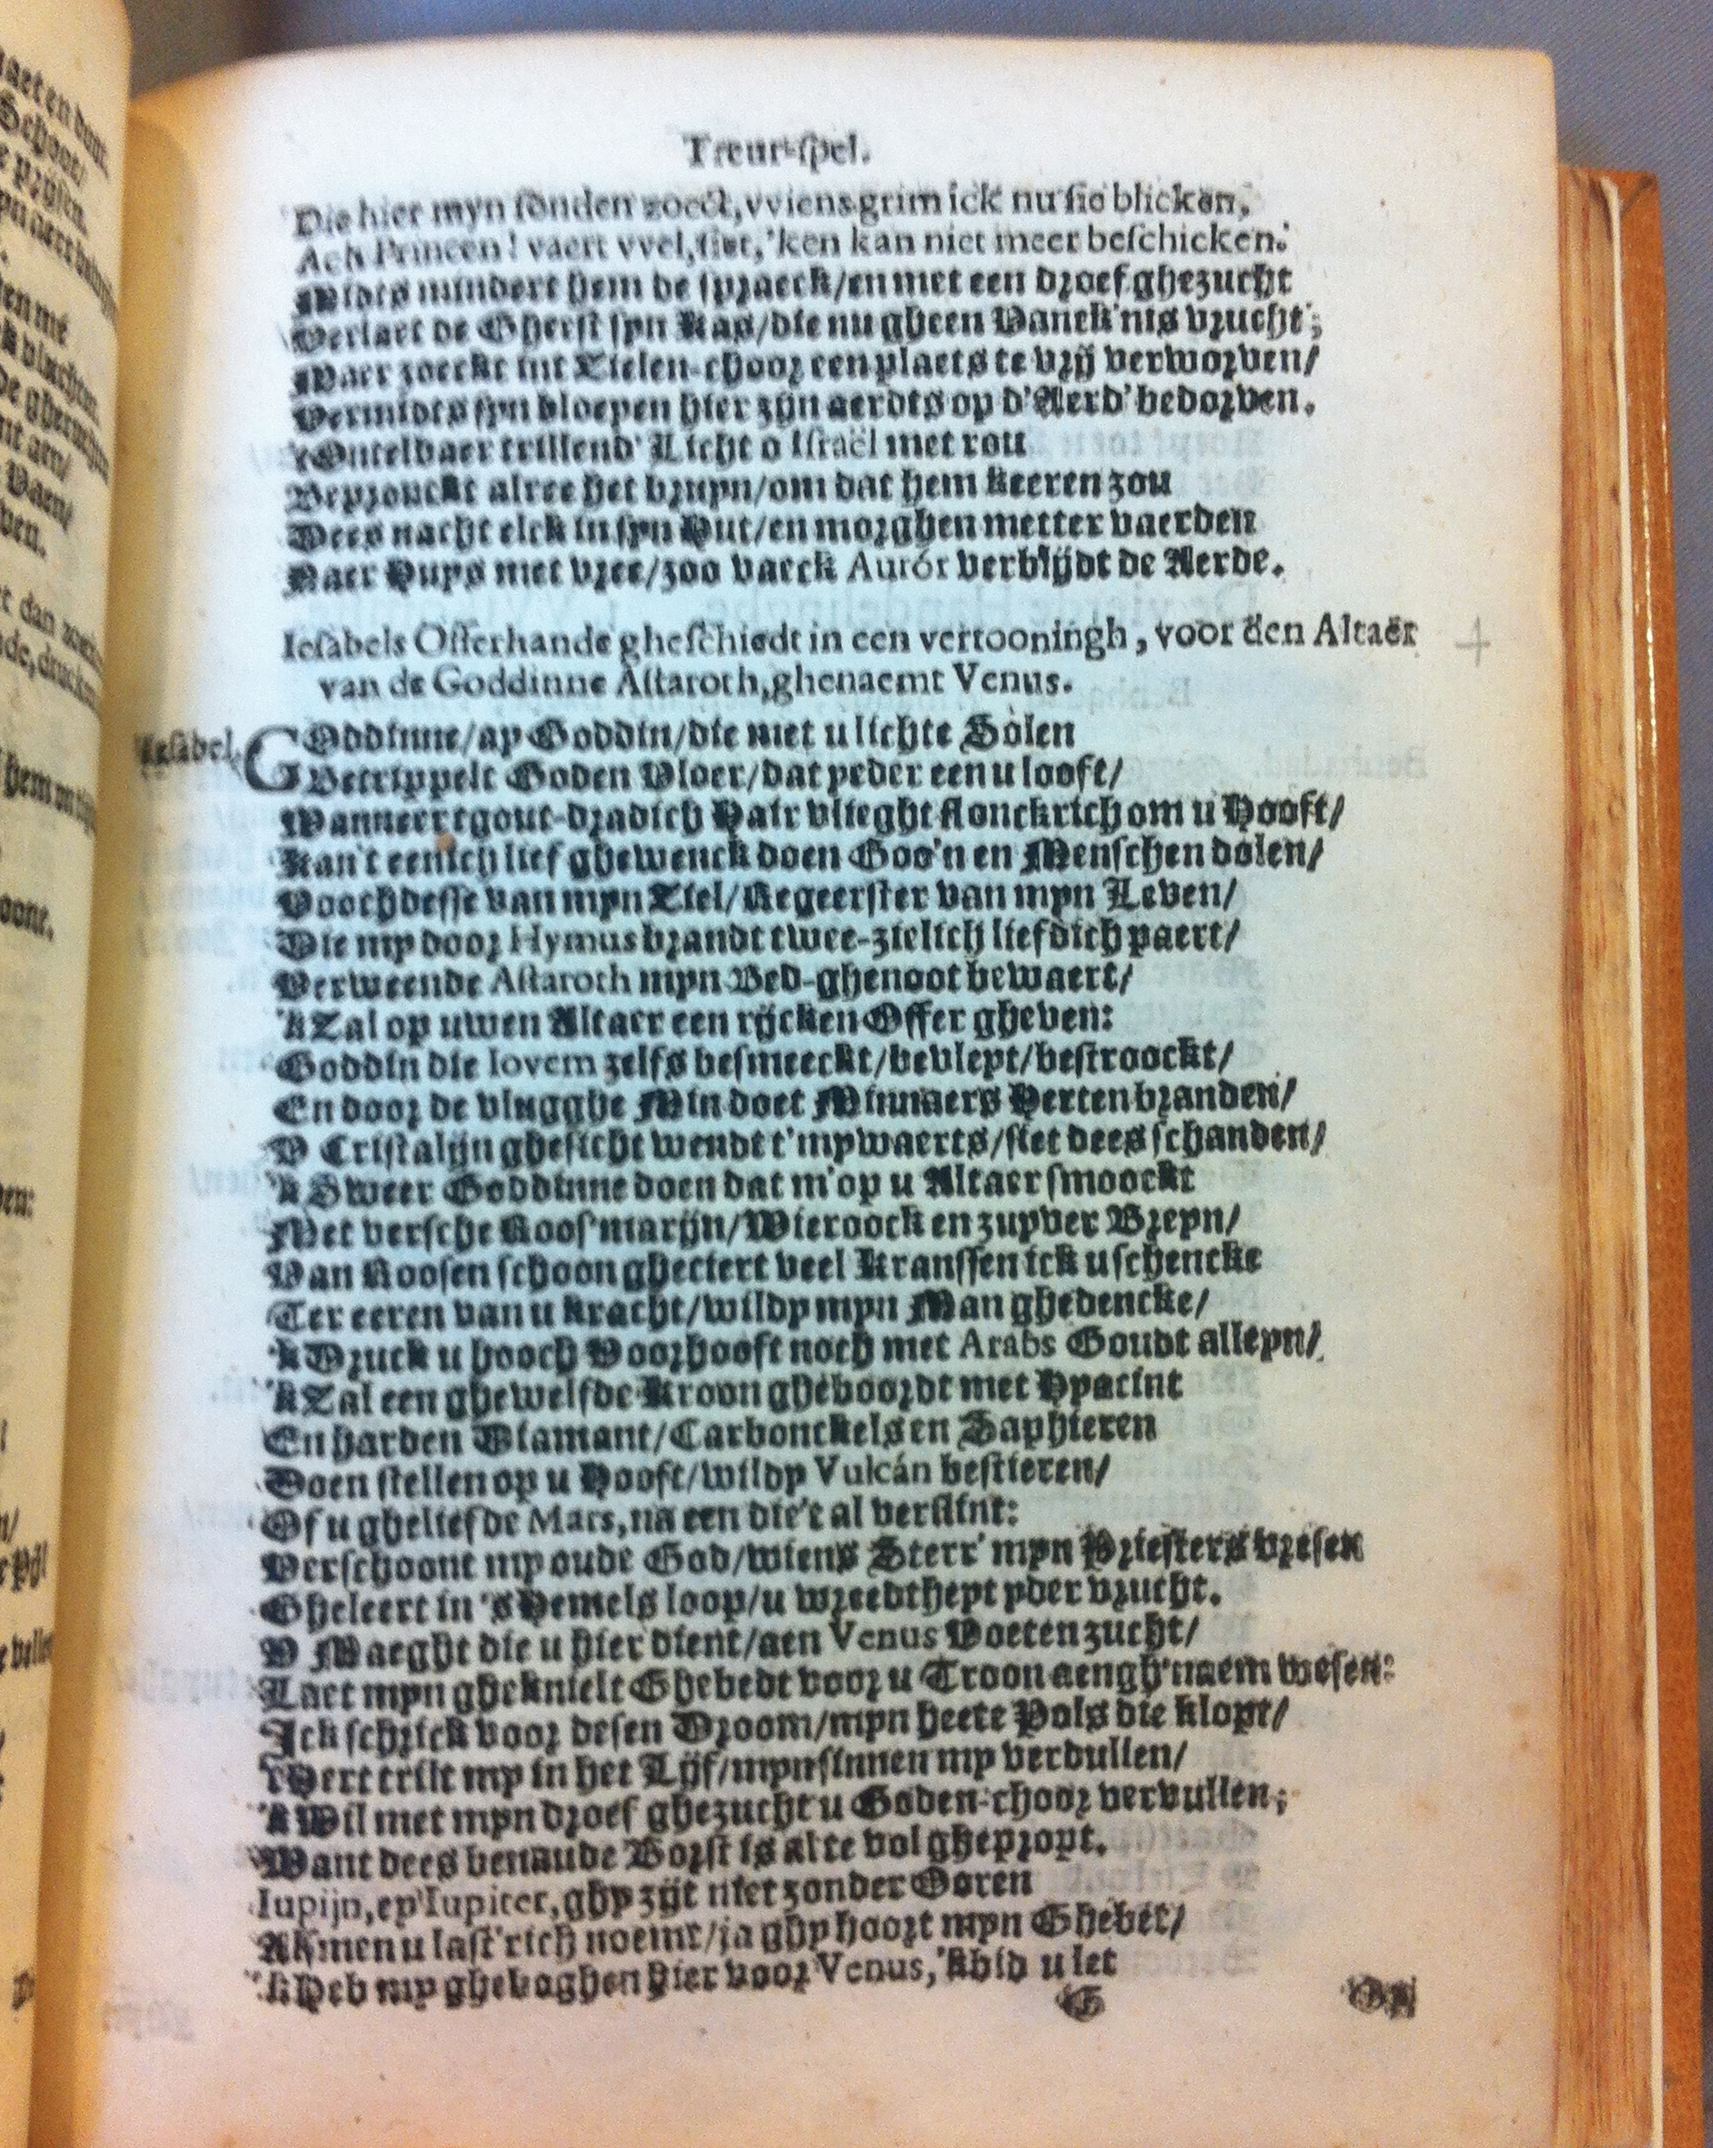 Treur-spel.
Die hier myn sonden zoeckt, vviens grim ick nu sie blicken,
Ach Princen! vaert vvel, siet, 'ken kan niet meer beschicken.
Midts mindert hem de spraeck/en met een droef ghezucht
Verlaet de Gheest syn Kas/die nu gheen Vanck'nis vrucht;
Maer zoeckt int Zielen-choor een plaets te vrij verworven/
Vermidts syn bloeyen hier zijn aerdts op d'Aerd' bedorven.
't Ontelbaer trillend' Licht o Israël met rou
Bepronckt alree het bruyn/om dat hem keeren zou
Dees nacht elck in syn Hut/en morghen metter vaerden
Naer Huys met vree/zoo vaeck Aurór verblijdt de Aerde.
Iesabels Offerhande gheschiedt in een vertooningh, voor den Altaer
van de Goddinne Astaroth, ghenaemt Venus.
Iesabel. GOddinne/ay Goddin/die met u lichte Solen
Betrippelt Goden Vloer/dat yeder een u looft/
Wanneer tgout-dradich Hair vlieght flonckrich om u Hooft/
Kan't eenich lief ghewenck doen Goo'n en Menschen dolen/
Voochdesse van myn Ziel/Regeerster van myn Leven/
Die my door Hymus brandt twee-zielich liefdich paert/
Verweende Astaroth myn Bed-ghenoot bewaert/
'k Zal op uwen Altaer een rijcken Offer gheven:
Goddin die Iovem zelfs besmeeckt/bevleyt/bestroockt/
En door de vlugghe Min doet Minnaers Herten branden/
V Cristalijn ghesicht wendt t'mywaerts/siet dees schanden/
'k Sweer Goddinne doen dat m'op u Altaer smoockt
Met versche Roos'marijn/Wieroock en zuyver Breyn/
Van Roosen schoon gheciert veel Kranssen ick u schencke
Ter eeren van u kracht/wildy myn Man ghedencke/
'k Druck u hooch Voorhooft noch met Arabs Goudt alleyn/
'k Zal een ghewelfde Kroon gheboordt met Hyacint
En harden Diamant/Carbonckels en Saphieren
Doen stellen op u Hooft/wildy Vulcán bestieren/
Of u gheliefde Mars, na een die't al verslint:
Verschoont my oude God/wiens Sterr' myn Priesters vresen
Gheleert in 's Hemels loop/u wreedtheyt yder vrucht.
V Maeght die u hier dient/aen Venus Voeten zucht/
Laet myn gheknielt Ghebedt voor u Troon aengh'naem wesen:
Ick schrick voor desen Droom/myn heete Pols die klopt/
't Hert trilt my in het Lijf/myn sinnen my verdullen/
'k Wil met myn droef ghezucht u Goden-choor vervullen;
Want dees benaude Borst is al te vol ghepropt.
Iupijn, ey Iupiter, ghy zijt niet zonder Ooren
Als men u last'rich noemt/ja ghy hoort myn Ghebet/
'k Heb my gheboghen hier voor Venus, 'k bid u let
G